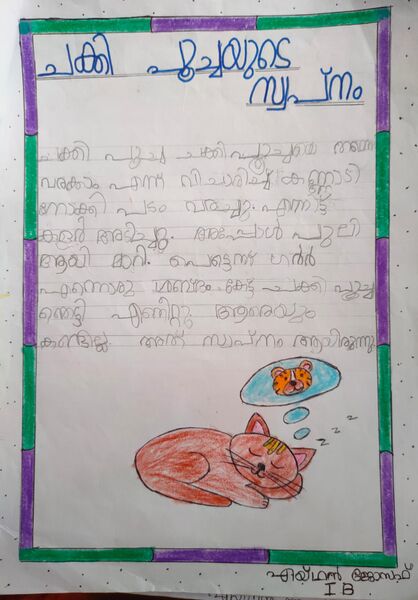 ചക്കി പൂച്ചയുടെ
സ്വപ്നം
ചക്കി പൂച്ച ചക്കിപൂച്ചയെ തന്നെ
വരക്കാം എന്ന് വിചാരിച്ചു കണ്ണാടി
നോക്കി പടം വരച്ചു. എന്നിട്ട്
കളർ അടിച്ചു. അപ്പോൾ പുലി
ആയി മാറി. പെട്ടെന്ന് ഗർർ
എന്നൊരു ശബ്ദം കേട്ട് ചക്കി പൂച്ച
ഞെട്ടി എണീറ്റു ആരെയും
കണ്ടില്ല. അത് സ്വപ്നം ആയിരുന്നു.
z z z
ഏയ്ഥൻ ജോസഫ്
I B